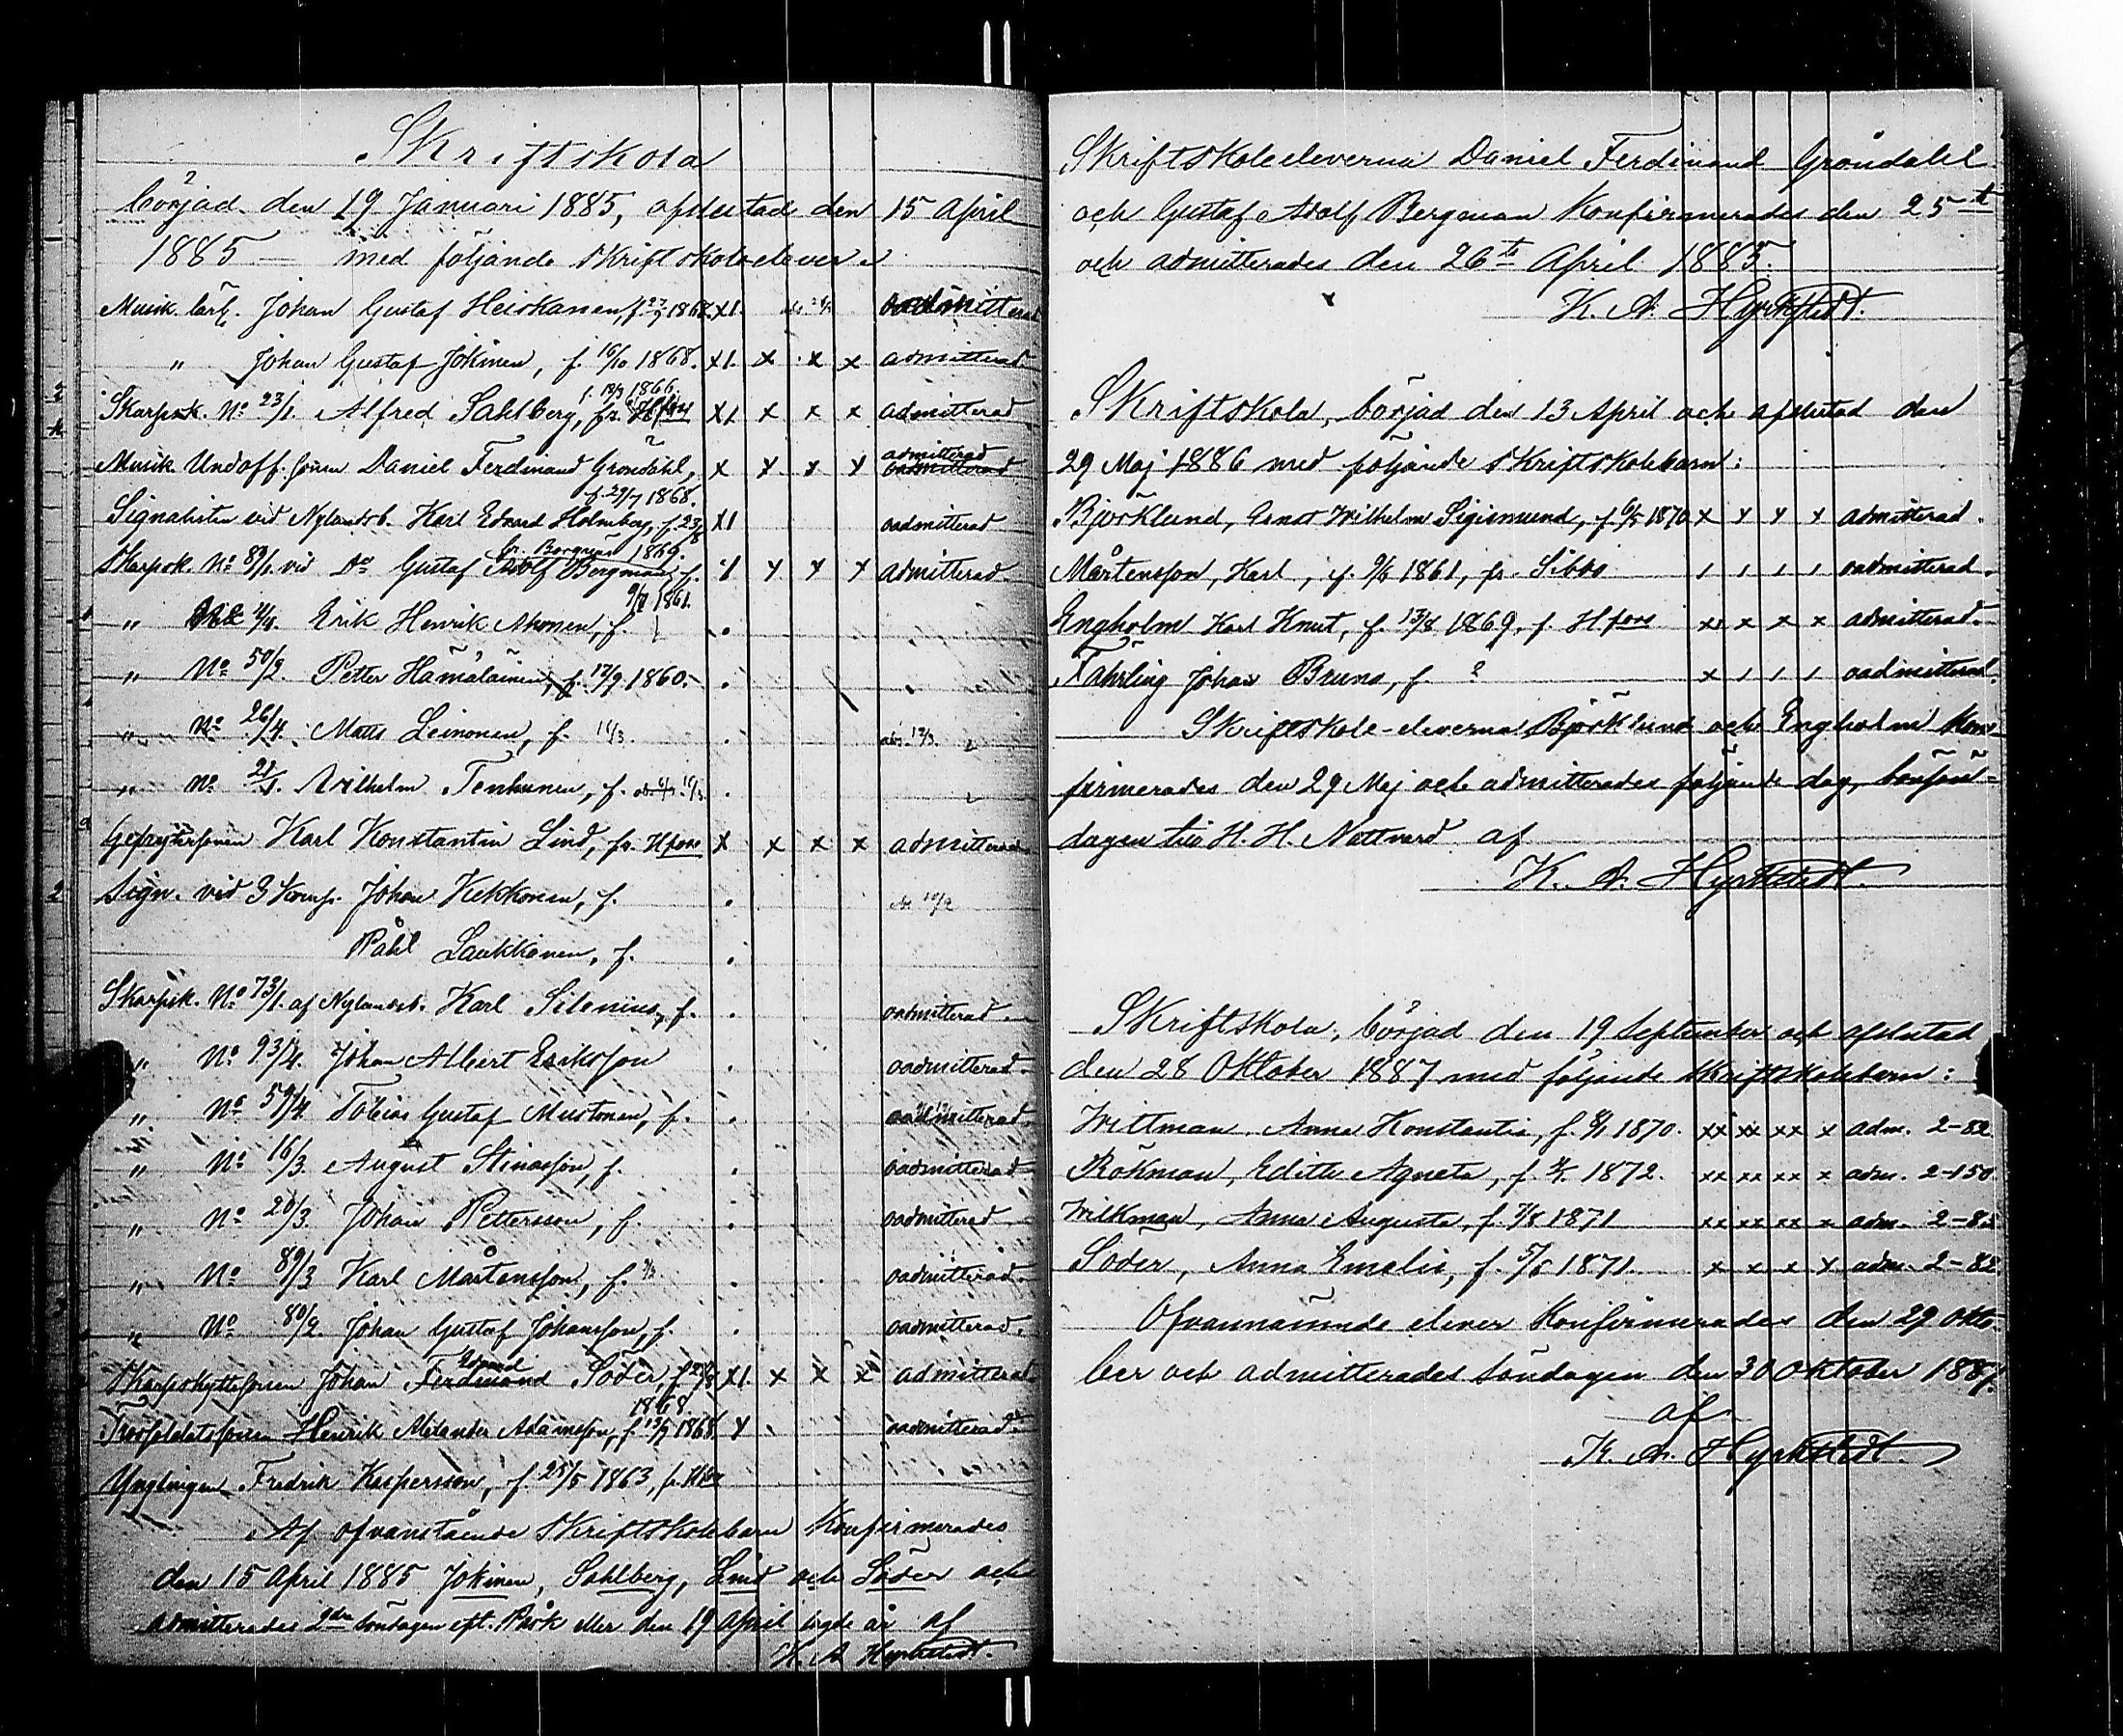 Skriftskola
börjad den 19 Januari 1885, afslutad den 15 April
1885 — med följande skriftskoleelever.
Musik. lärl. Johan Gustaf Heiskanen, f. 27/7 1868. x1. oadmitterad
" Johan Gustaf Jokinen, f. 16/10 1868. x1. x x x admitterad
f. 19/9 1866.
Skarpsk. No 23/1. Alfred Sahlberg, fr. Hfors x1 x x x admitterad
admitterad
Musik Undoff. sonen Daniel Ferdinand Gröndahl, x x x x oadmitterad
f. 29/7 1868.
Signalisten vid Nylandsb. Karl Edvard Holmberg, f. 23/8 x1 oadmitterad
fr. Borgnäs 1869.
Skarpsk. No 89/1. vid Do Gustaf Adolf Bergman, f. x x x admitterad
9/7 1861.
" Erik Henrik Ahonen, f.
" No 50/2. Petter Hämäläinen, f. 17/9 1860.
" No 26/4. Matts Leinonen, f.
" No 21/1. Wilhelm Tenhunen, f.
Gefreitersonen Karl Konstantin Lind, fr. Hfors x x x x admitterad
Sign. vid 3 Komp. Johan Kekkonen, f.
Påhl Laukkanen, f.
Skarpsk. No 73/1. af Nylandsb. Karl Silenius, f. oadmitterad.
" No 93/4. Johan Albert Eriksson oadmitterad.
" No 59/4. Tobias Gustaf Mustonen, f. oadmitterad.
" No 16/3. August Stinasson, f. oadmitterad
" No 20/3. Johan Pettersson, f. oadmitterad
" No 89/3 Karl Mårtensson, f. oadmitterad.
" No 80/2. Johan Gustaf Johansson, f. oadmitterad.
Edvard
Skarpskyttesonen Johan Ferdinand Söder, f. x1. x x x admitterad
1868.
Henrik Alexander Adamsson, f. 13/7 1868. x oadmitterad.
Ynglingen Fredrik Kaspersson, f. 25/5 1863,
Af ofvanstående skriftskolebarn konfirmerades
den 15 April 1885 Jokinen, Sahlberg, Lind och Söder och
admitterades 2dra söndagen eft. Påsk eller den 19 April sagde år af
K. A. Hyrkstedt.
Skriftskoleeleverna Daniel Ferdinand Gröndahl
och Gustaf Adolf Bergman konfirmerades den 25te
och admitterades den 26te April 1885.
K. A. Hyrkstedt.
Skriftskola, börjad den 13 April och afslutad den
29 Maj 1886 med följande skriftskolebarn:
Björklund, Ernst Wilhelm Sigismund, f. 6/5 1870 x x x x admitterad.
Mårtensson, Karl, f. 9/6 1861, fr. Sibbo 1 1 1 1 oadmitterad.
Engholm Karl Knut, f. 13/8 1869. f. Hfors xx x x x admitterad.
Fährling Johan Bruno, f. ? x 1 1 1 oadmitterad.
Skriftskole-eleverna Björklund och Engholm kon-
firmerades den 29 Maj och admitterades följande dag, bönsön-
dagen till H. H. Nattvard af
K. A. Hyrkstedt.
Skriftskola, börjad den 19 September och afslutad
den 28 Oktober 1887 med följande skriftskolebarn:
Wittman, Anna Konstantia, f. 8/1 1870. xx xx xx x adm. 2-82
Rökman, Edith Agneta, f. 1872. xx xx xx x adm. 2-150.
Wilkman, Anna Augusta, f. 7/8 1871 xx xx xx x adm. 2-82
Söder, Anna Emelie, f. 5/6 1871. x x x x adm. 2-82.
Ofvannämnde elever konfirmerades den 29 Okto-
ber och admitterades söndagen den 30 Oktober 1887.
af
K. A. Hyrkstedt.